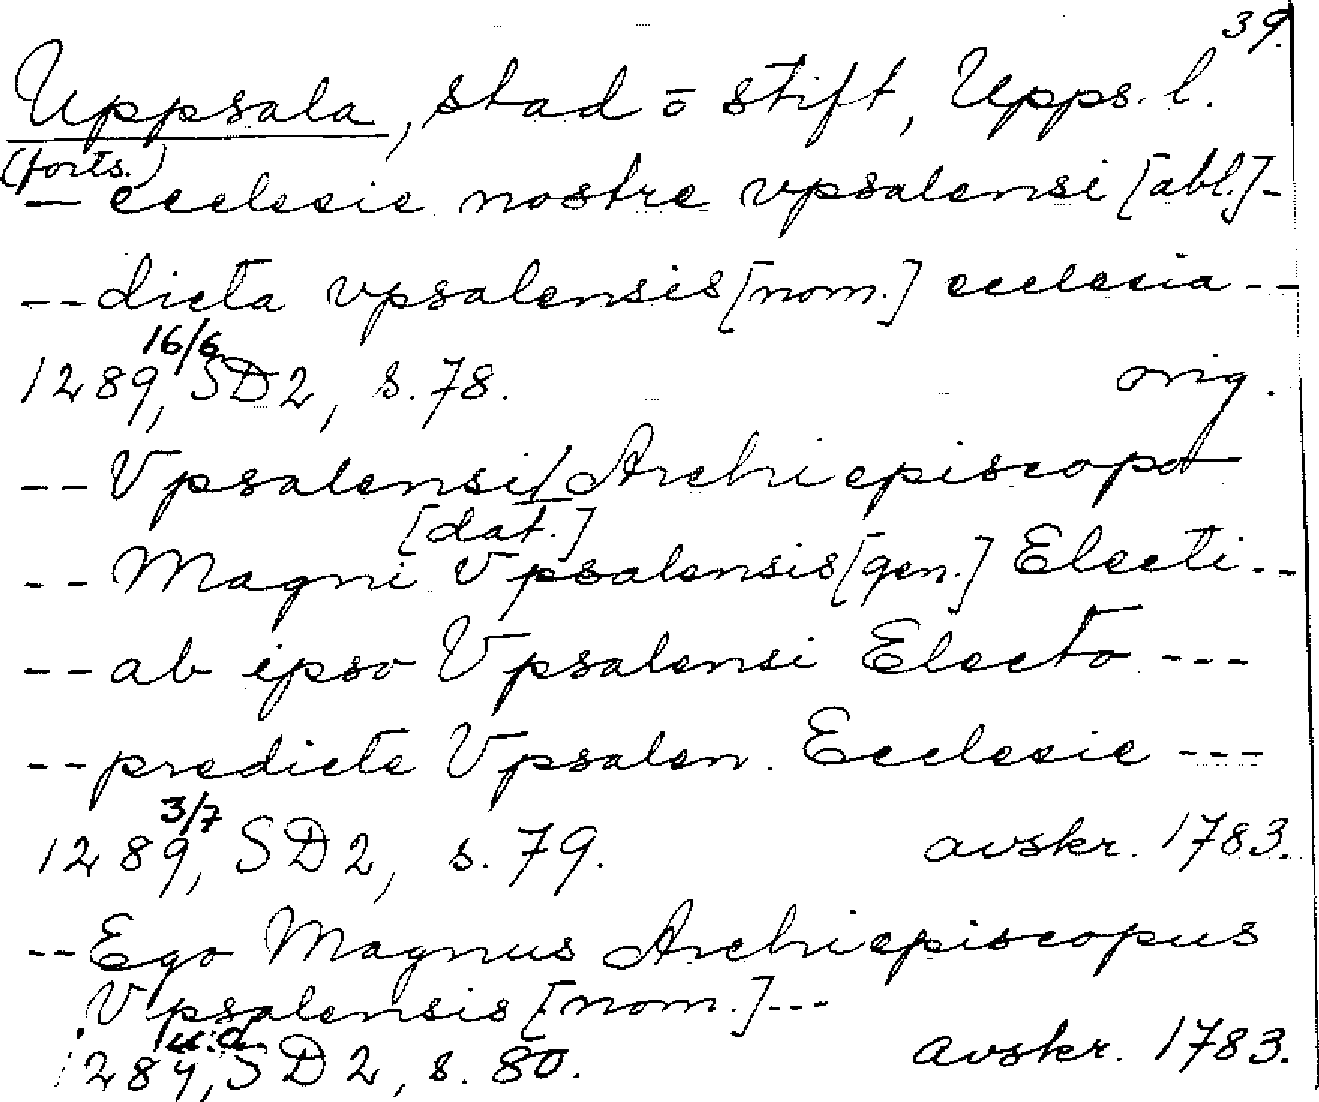 39.
Uppsala, stad o stift, Upps. l.
(forts.)
-- ecclesie nostre vpsalensi [abl.] -
-- dicta vpsalensis [nom.] ecclesia --
16/6
1289, SD2, s. 78. orig.
-- Vpsalensi / Archiepiscopo
[dat.]
-- Magni Vpsalensis [gen.] Electi --
-- ab ipso Vpsalensi Electo ---
-- predicte Vpsalen. Ecclesie ---
3/7
1289, SD2, s. 79. avskr. 1783.
-- Ego Magnus Archiepiscopus
Vpsalensis [nom.] ---
u.d
1289, SD2, s. 80. avskr. 1783.